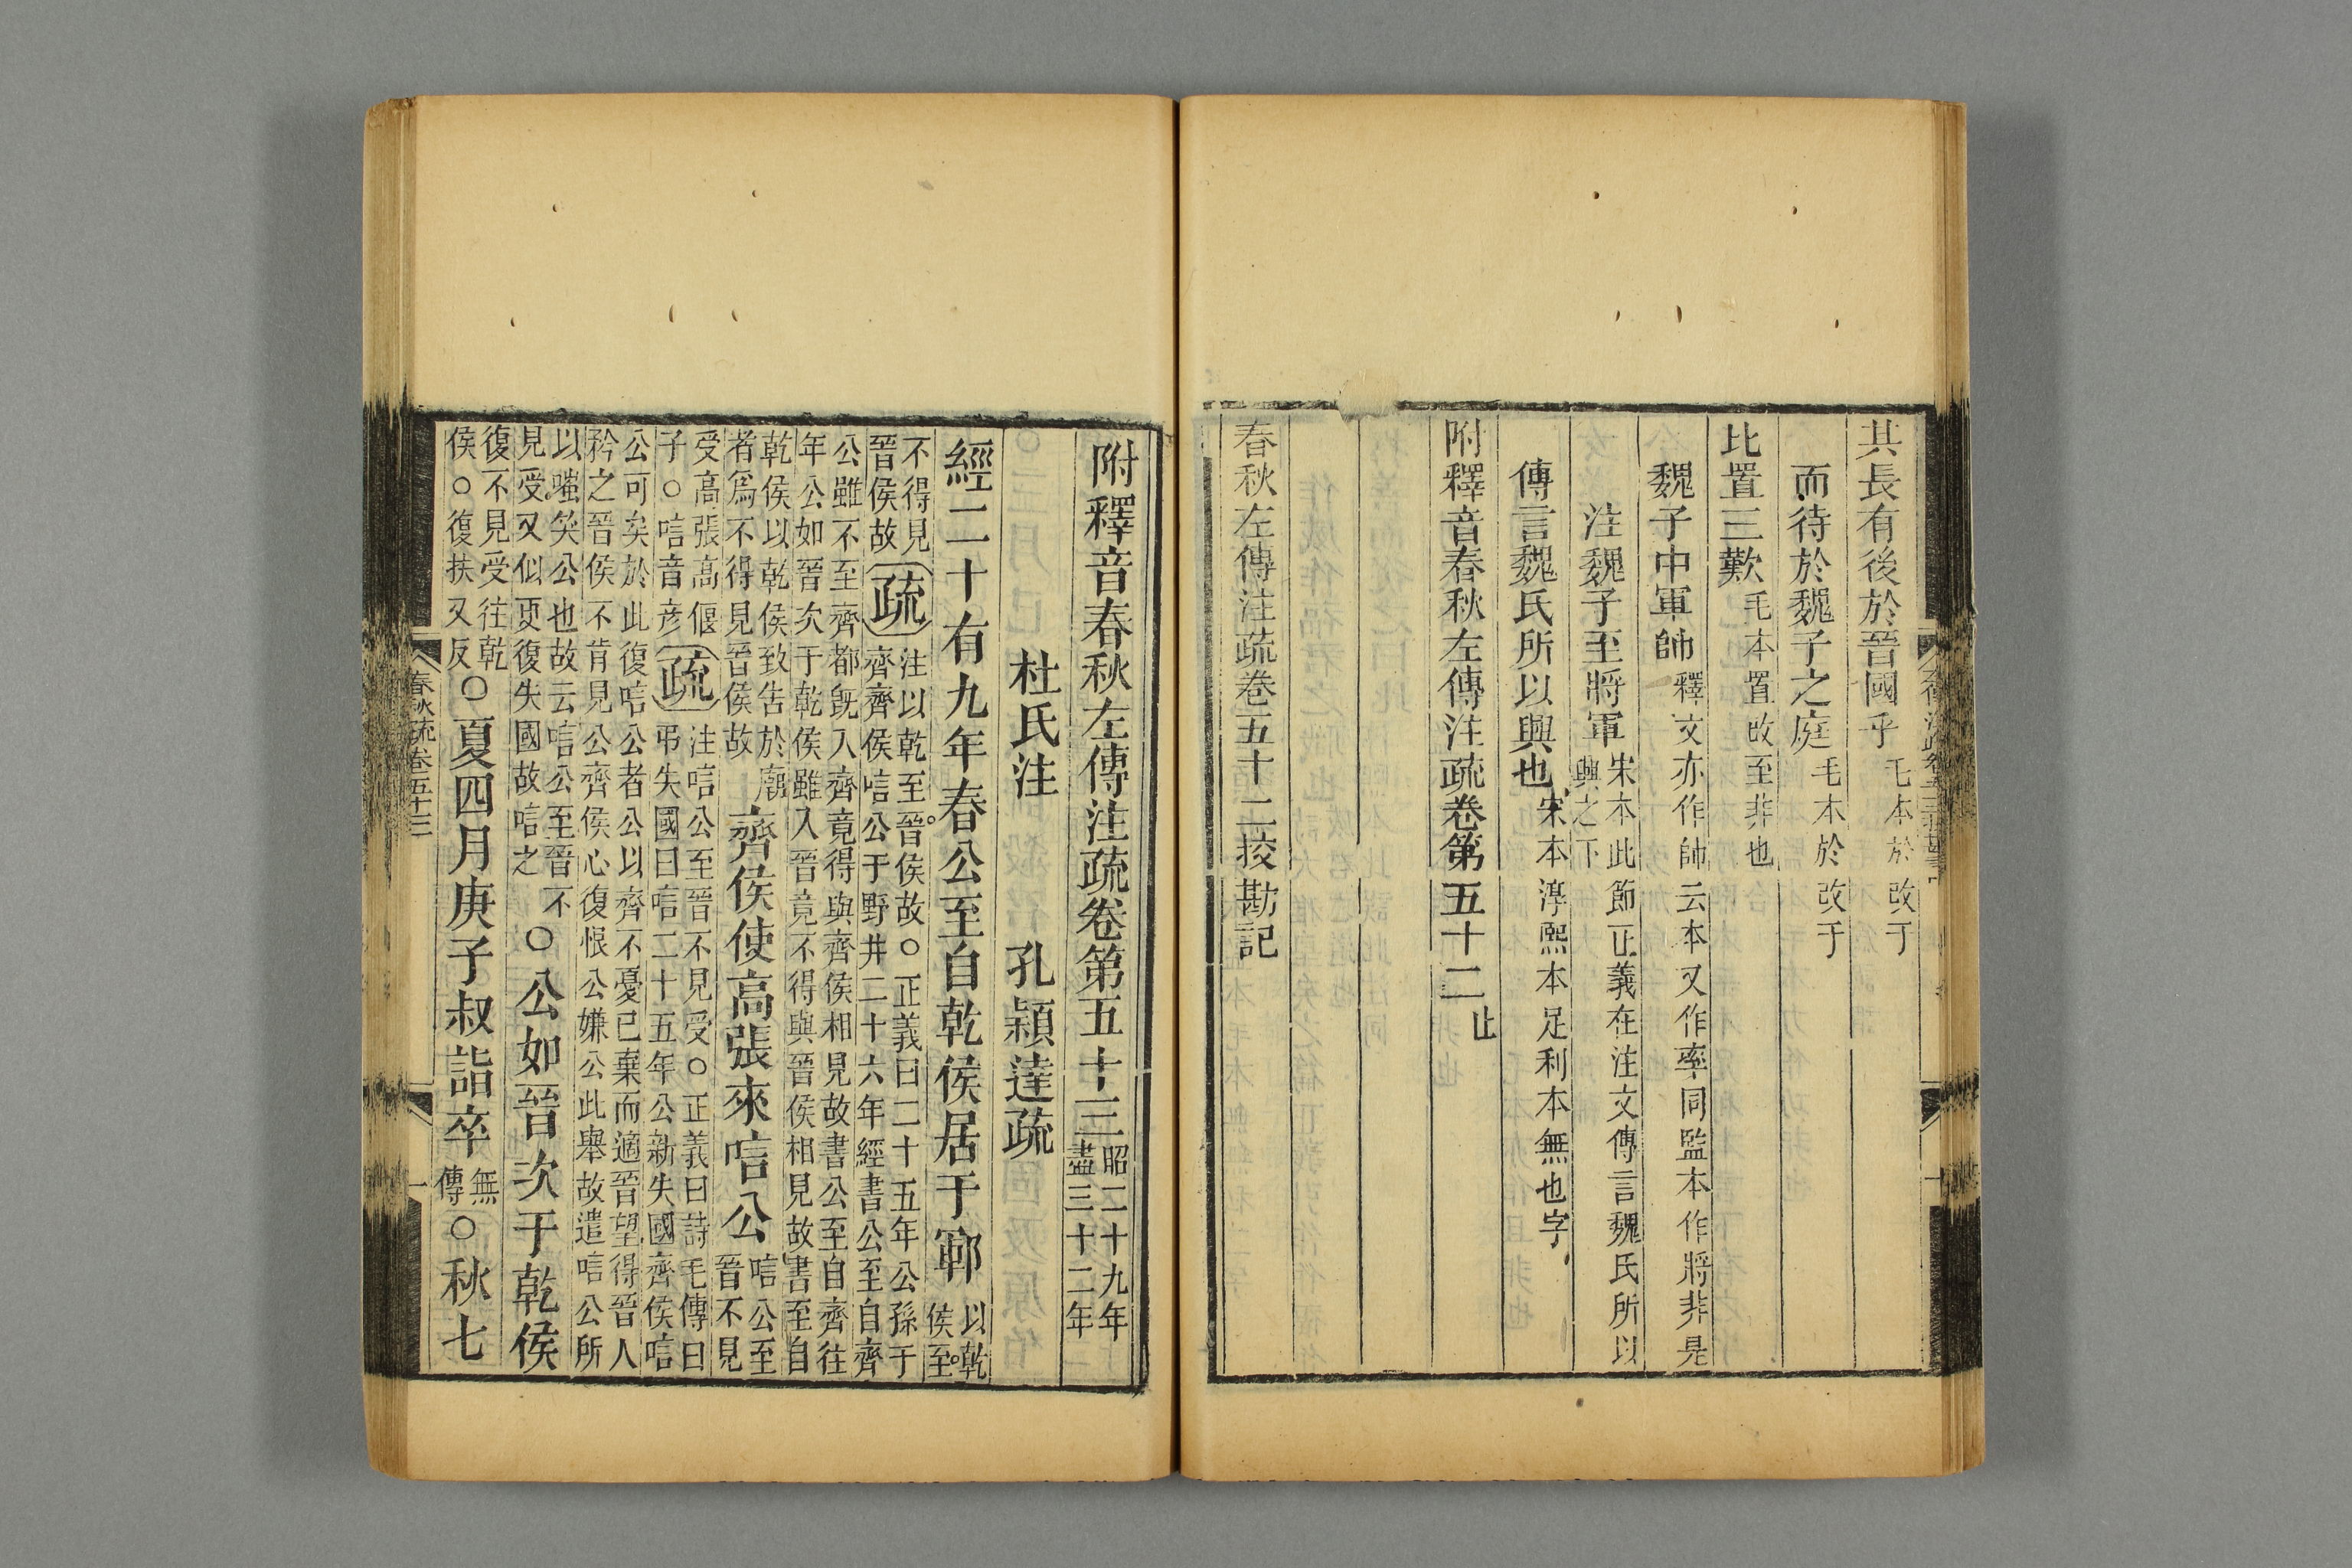 其長有後於晉國乎毛本於改于
而待於魏子之庭毛本於改于
比置三歎毛本置改至非也
魏子中軍帥釋文亦作帥云本又作率同監本作將非是
注魏子至將軍宋本此節正義在注文傳言魏氏所以
興之下
傳言魏氏所以興也宋本淳熙本足利本無也字
附釋音春秋左傳注疏卷第五十二止
春秋左傳注疏卷五十二挍勘記
附釋音春秋左傳注疏卷第五十三昭二十九年
盡三十二年
杜氏注 孔穎達疏
經二十有九年春公至自乾侯居于鄆以乾
侯至
不得見
晉侯故疏注以乾至晉侯故○正義曰二十五年公孫于
齊齊侯唁公于野井二十六年經書公至自齊
公雖不至齊都既入齊竟得與齊侯相見故書公至自齊往
年公如晉次于乾侯雖入晉竟不得與晉侯相見故書至自
乾侯以乾侯致告於廟
者爲不得見晉侯故
齊侯使高張來唁公唁公至
晉不見
受高張高偃
子○唁音彦疏注唁公至晉不見受○正義曰詩毛傳曰
弔失國曰唁二十五年公新失國齊侯唁
公可矣於此復唁公者公以齊不憂已棄而適晉望得晉人
矜之晉侯不肯見公齊侯心復恨公嫌公此舉故遣唁公所
以嗤笑公也故云唁公至晉不
見受又似更復失國故唁之
○公如晉次于乾侯
復不見受往乾
侯○復扶又反○夏四月庚子叔詣卒無
傳○秋七
春秋疏卷五十三
一